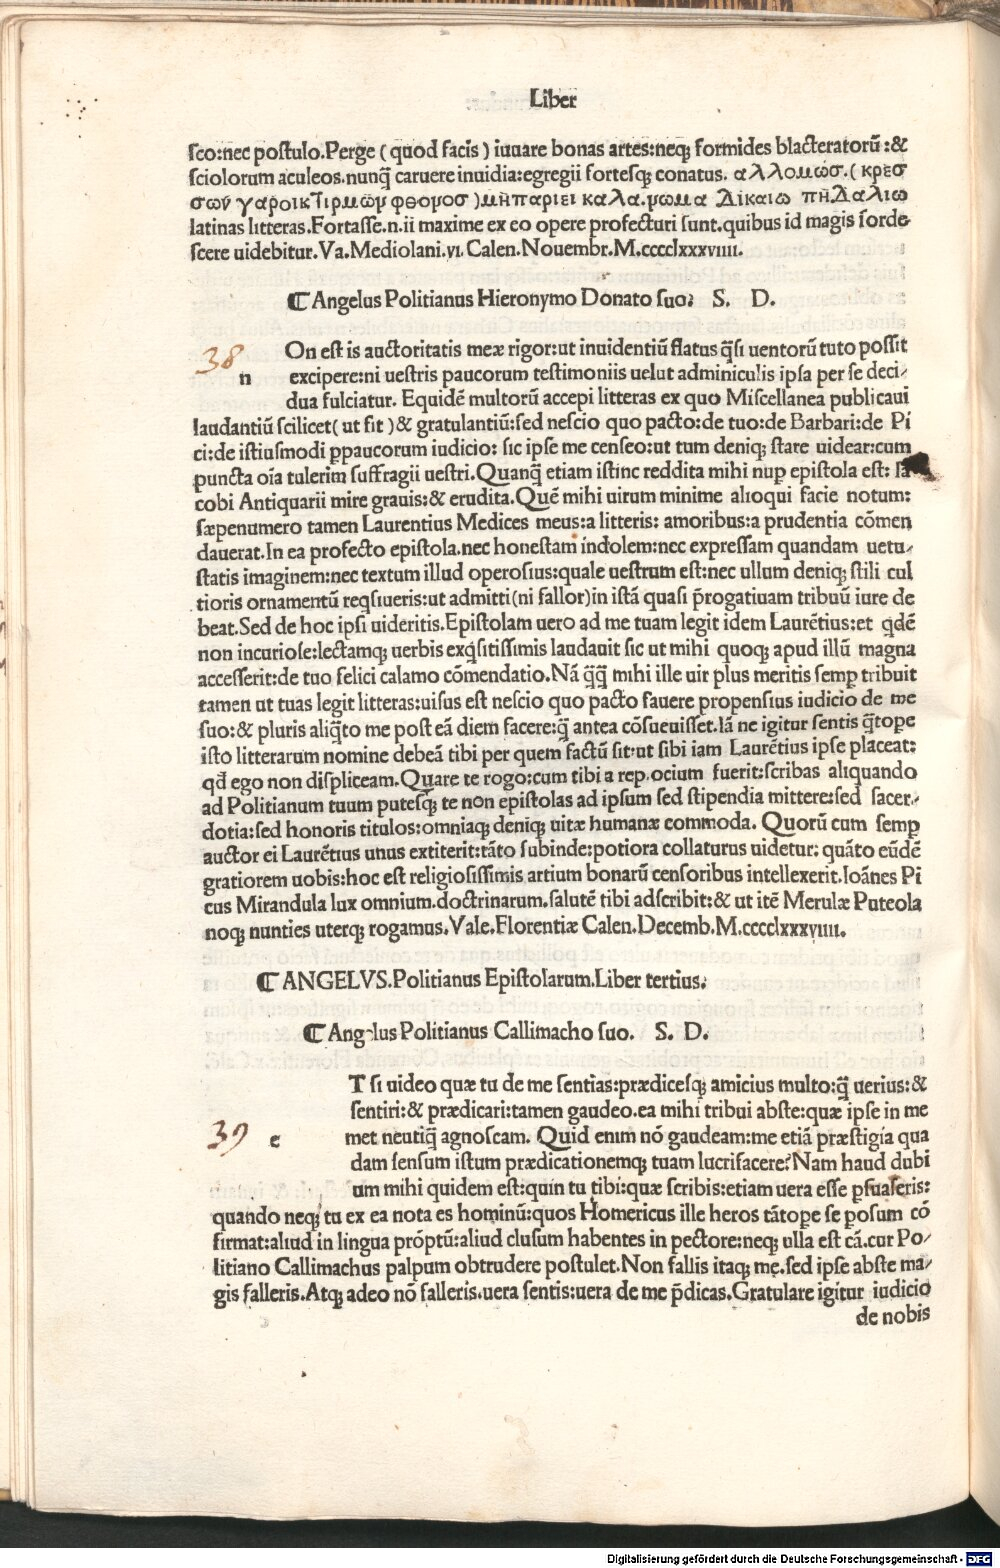 Liber
ſco:nec poſtulo.Perge ( quod facis ) iuuare bonas artes:neq; formides blacteratorū :&
ſciolorum aculeos.nunq̃ caruere inuidia:egregii forteſq; conatus. αλλομώσ.( κρεσ
σων γαροικτιρμῶν φθομοσ ) μὴπαριει καλα.νωμα Δίκαιω πηΔαλιω
latinas litteras.Fortaſſe.n.ii maxime ex eo opere profecturi ſunt.quibus id magis ſorde
ſcere uidebitur. Va. Mediolani.vi. Calen. Nouembr. M.cccclxxxviiii.
¶ Angelus Politianus Hieronymo Donato ſuo: S. D.
38
n
On eſt is auctoritatis meæ rigor:ut inuidentiū flatus q̃ſi uentorū tuto poſſit
excipere:ni ueſtris paucorum teſtimoniis uelut adminiculis ipſa per ſe deci-
dua fulciatur. Equidē multorū accepi litteras ex quo Miſcellanea publicaui
laudantiū ſcilicet( ut fit )& gratulantiū:ſed neſcio quo pacto:de tuo:de Barbari:de Pi
ci:de iſtiuſmodi ꝑpaucorum iudicio: ſic ipſe me cenſeo:ut tum deniq; ſtare uidear:cum
puncta oīa tulerim ſuffragii ueſtri.Quanq̃ etiam iſtinc reddita mihi nuꝑ epiſtola eſt: Ia
cobi Antiquarii mire grauis:& erudita.Quē mihi uirum minime alioqui facie notum:
ſæpenumero tamen Laurentius Medices meus:a litteris: amoribus:a prudentia cōmen
dauerat.In ea profecto epiſtola.nec honeſtam indolem:nec expreſſam quandam uetu-
ſtatis imaginem:nec textum illud operoſius:quale ueſtrum eſt:nec ullum deniq; ſtili cul
tioris ornamentū reqſiueris:ut admitti(ni fallor)in iſtā quaſi p̄rogatiuam tribuū iure de
beat.Sed de hoc ipſi uideritis.Epiſtolam uero ad me tuam legit idem Laurētius:et qdē
non incurioſe:lectamq; uerbis exqſitiſſimis laudauit ſic ut mihi quoq; apud illū magna
acceſſerit:de tuo felici calamo cōmendatio.Nā q̃q̃ mihi ille uir plus meritis ſemꝑ tribuit
tamen ut tuas legit litteras:uiſus eſt neſcio quo pacto fauere propenſius iudicio de me
ſuo:& pluris aliq̃to me poſt eā diem facere:q̃ antea cōſueuiſſet.Iā ne igitur ſentis q̃tope
iſto litterarum nomine debeā tibi per quem factū ſit:ut ſibi iam Laurētius ipſe placeat:
qđ ego non diſpliceam.Quare te rogo:cum tibi a rep.ocium fuerit:ſcribas aliquando
ad Politianum tuum puteſq; te non epiſtolas ad ipſum ſed ſtipendia mittere:ſed ſacer-
dotia:ſed honoris titulos:omniaq; deniq; uitæ humanæ commoda. Quorū cum ſemꝑ
auctor ei Laurētius unus extiterit:tāto ſubinde:potiora collaturus uidetur: quāto eūdē
gratiorem uobis:hoc eſt religioſiſſimis artium bonarū cenſoribus intellexerit.Ioānes Pi
cus Mirandula lux omnium.doctrinarum.ſalutē tibi adſcribit:& ut itē Merulæ Puteola
noq; nunties uterq; rogamus.Vale.Florentiæ Calen.Decemb.M.cccclxxxviiii.
¶ ANGELVS.Politianus Epiſtolarum.Liber tertius:
¶ Angelus Politianus Callimacho ſuo. S. D.
39
e
T ſi uideo quæ tu de me ſentias:prædiceſq; amicius multo:q̃ uerius:&
ſentiri:& prædicari:tamen gaudeo.ea mihi tribui abſte:quæ ipſe in me
met neutiq̃ agnoſcam. Quid enim nō gaudeam:me etiā præſtigia qua
dam ſenſum iſtum prædicationemq; tuam lucrifacere?Nam haud dubi
um mihi quidem eſt:quin tu tibi:quæ ſcribis:etiam uera eſſe ꝑſuaſeris:
quando neq; tu ex ea nota es hominū:quos Homericus ille heros tātope ſe poſum cō
firmat:aliud in lingua prōptū:aliud cluſum habentes in pectore:neq; ulla eſt cā.cur Po-
litiano Callimachus palpum obtrudere poſtulet.Non fallis itaq; me.ſed ipſe abſte ma-
gis falleris.Atq; adeo nō falleris.uera ſentis:uera de me p̄dicas.Gratulare igitur iudicio
de nobis
Digitalisierung gefördert durch die Deutsche Forschungsgemeinschaft - DFG